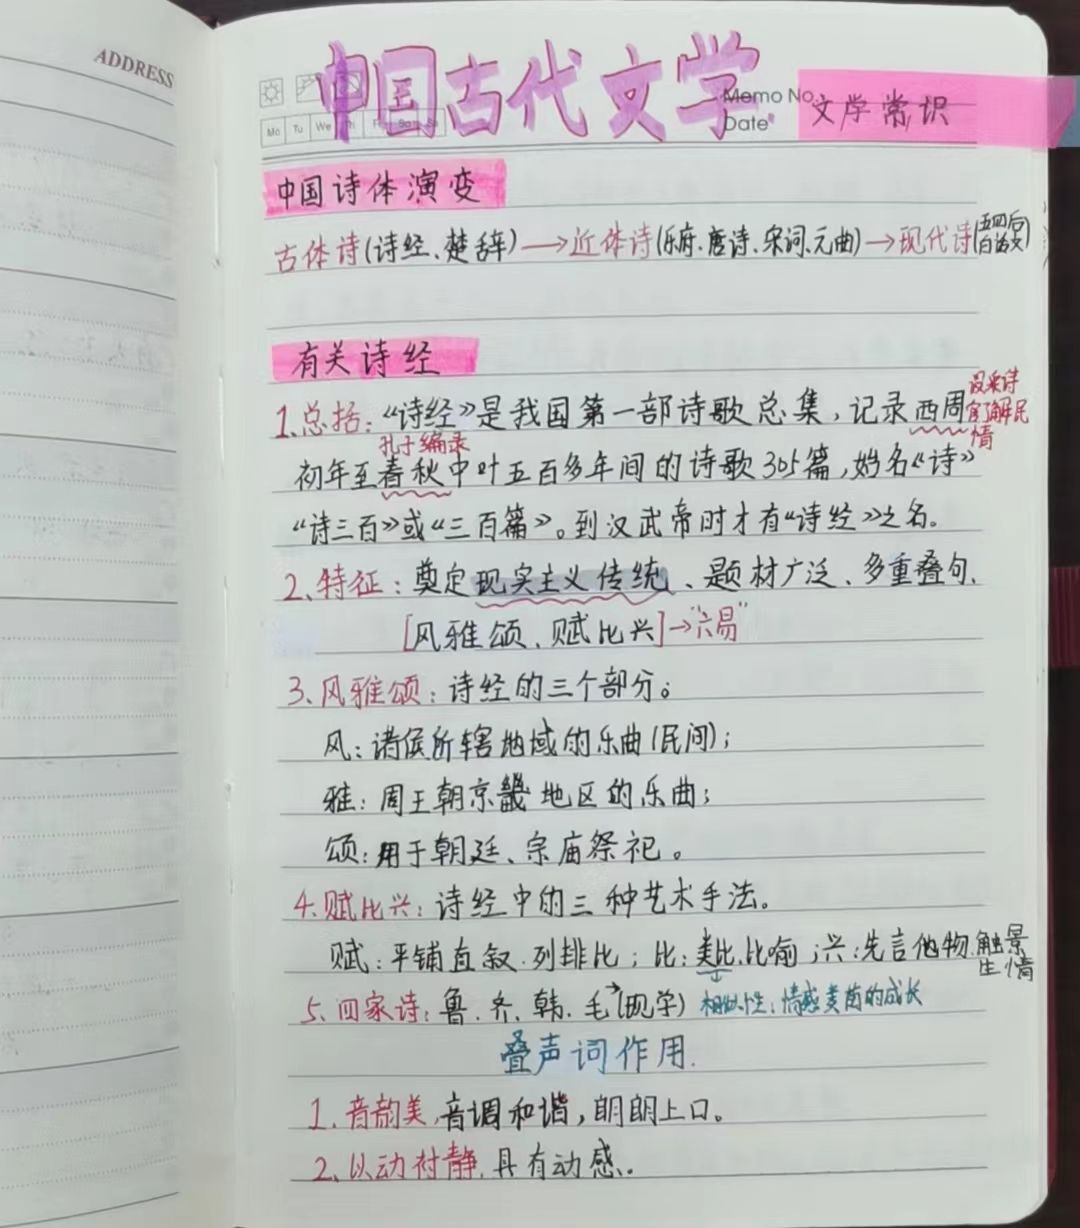 ADDRESS
中国古代文学
Memo No.
Date
Mo Tu We Th Fr Sa Su
文学常识
中国诗体演变
古体诗(诗经、楚辞)→近体诗(乐府、唐诗、宋词、元曲)→现代诗(五四后白话文)
有关诗经
设采诗官了解民情
1.总括:《诗经》是我国第一部诗歌总集,记录西周
孔子编录
初年至春秋中叶五百多年间的诗歌305篇,始名《诗》
《诗三百》或《三百篇》。到汉武帝时才有《诗经》之名。
2、特征:奠定现实主义传统、题材广泛、多重叠句、
[风雅颂、赋比兴]→"六易"
3、风雅颂:诗经的三个部分。
风:诸侯所辖地域的乐曲(民间);
雅:周王朝京畿地区的乐曲;
颂:用于朝廷、宗庙祭祀。
4.赋比兴:诗经中的三种艺术手法。
赋:平铺直叙.列排比;比:类比.比喻;兴:先言他物.触景生情
5、四家诗:鲁、齐、韩、毛→(现学) 相似性:情感类茵的成长
叠声词作用.
1.音韵美,音调和谐,朗朗上口。
2、以动衬静,具有动感。